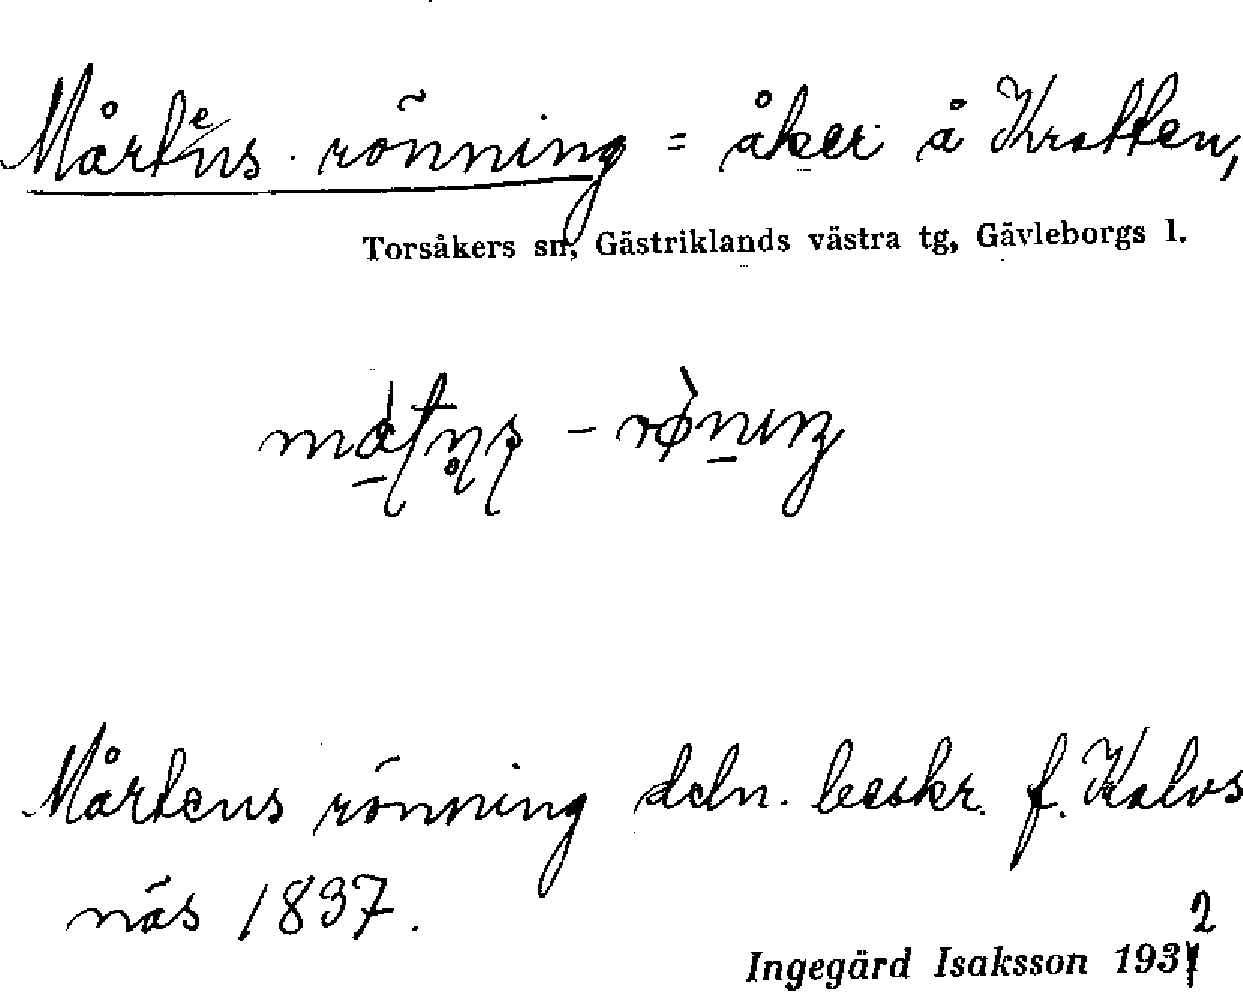 Mårtens rönning = åker å Kratten,
Torsåkers sn, Gästriklands västra tg, Gävleborgs l.
Mårtens rönning deln. beskr. f. Kalvs
näs 1837.
Ingegärd Isaksson 1932